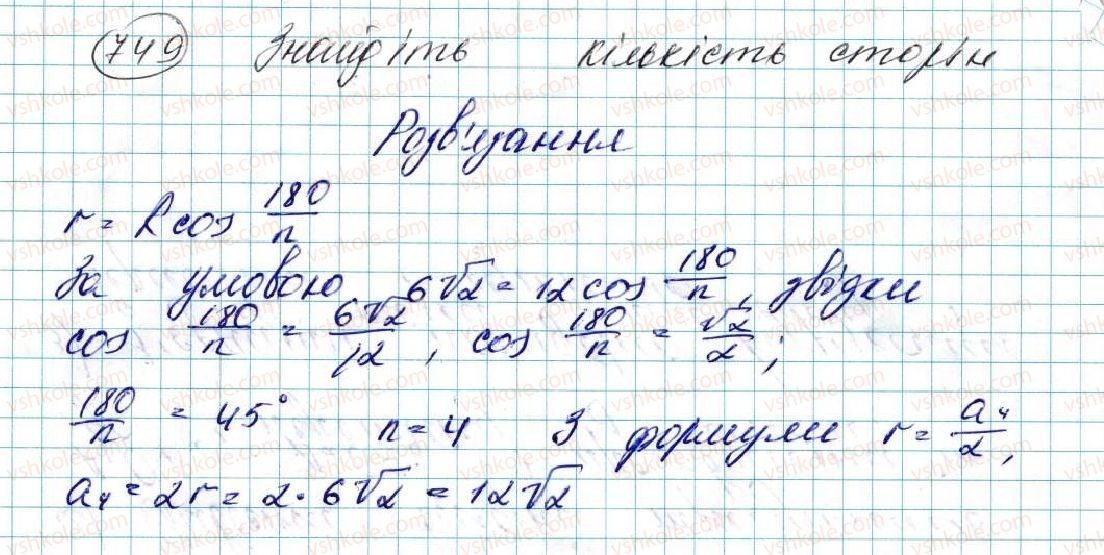 749 Знайдіть кількість сторін
Розв'язання
r = R cos 180/n
За умовою 6√2 = 12 cos 180/n, звідки
cos 180/n = 6√2/12, cos 180/n = √2/2;
180/n = 45° n = 4 З формули r = a₄/2,
a₄ = 2r = 2 · 6√2 = 12√2